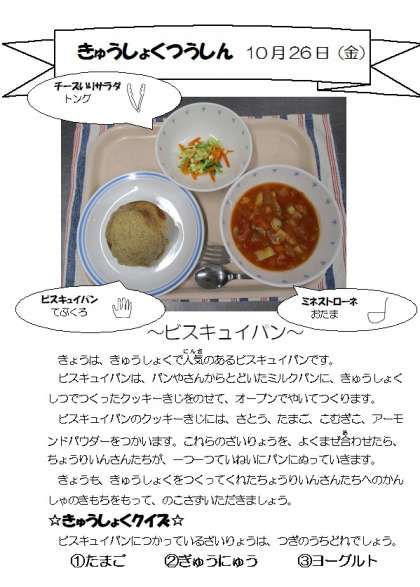 きゅうしょくつうしん 10月26日（金）
チーズいりサラダ
トング
ビスキュイパン
てぶくろ
ミネストローネ
おたま
～ビスキュイパン～
きょうは、きゅうしょくで人気のあるビスキュイパンです。
ビスキュイパンは、パンやさんからとどいたミルクパンに、きゅうしょく
しつでつくったクッキーきじをのせて、オーブンでやいてつくります。
ビスキュイパンのクッキーきじには、さとう、たまご、こむぎこ、アーモ
ンドパウダーをつかいます。これらのざいりょうを、よくまぜ合わせたら、
ちょうりいんさんたちが、一つ一つていねいにパンにぬっていきます。
きょうも、きゅうしょくをつくってくれたちょうりいんさんたちへのかん
しゃのきもちをもって、のこさずいただきましょう。
☆きゅうしょくクイズ☆
ビスキュイパンにつかっているざいりょうは、つぎのうちどれでしょう。
①たまご ②ぎゅうにゅう ③ヨーグルト